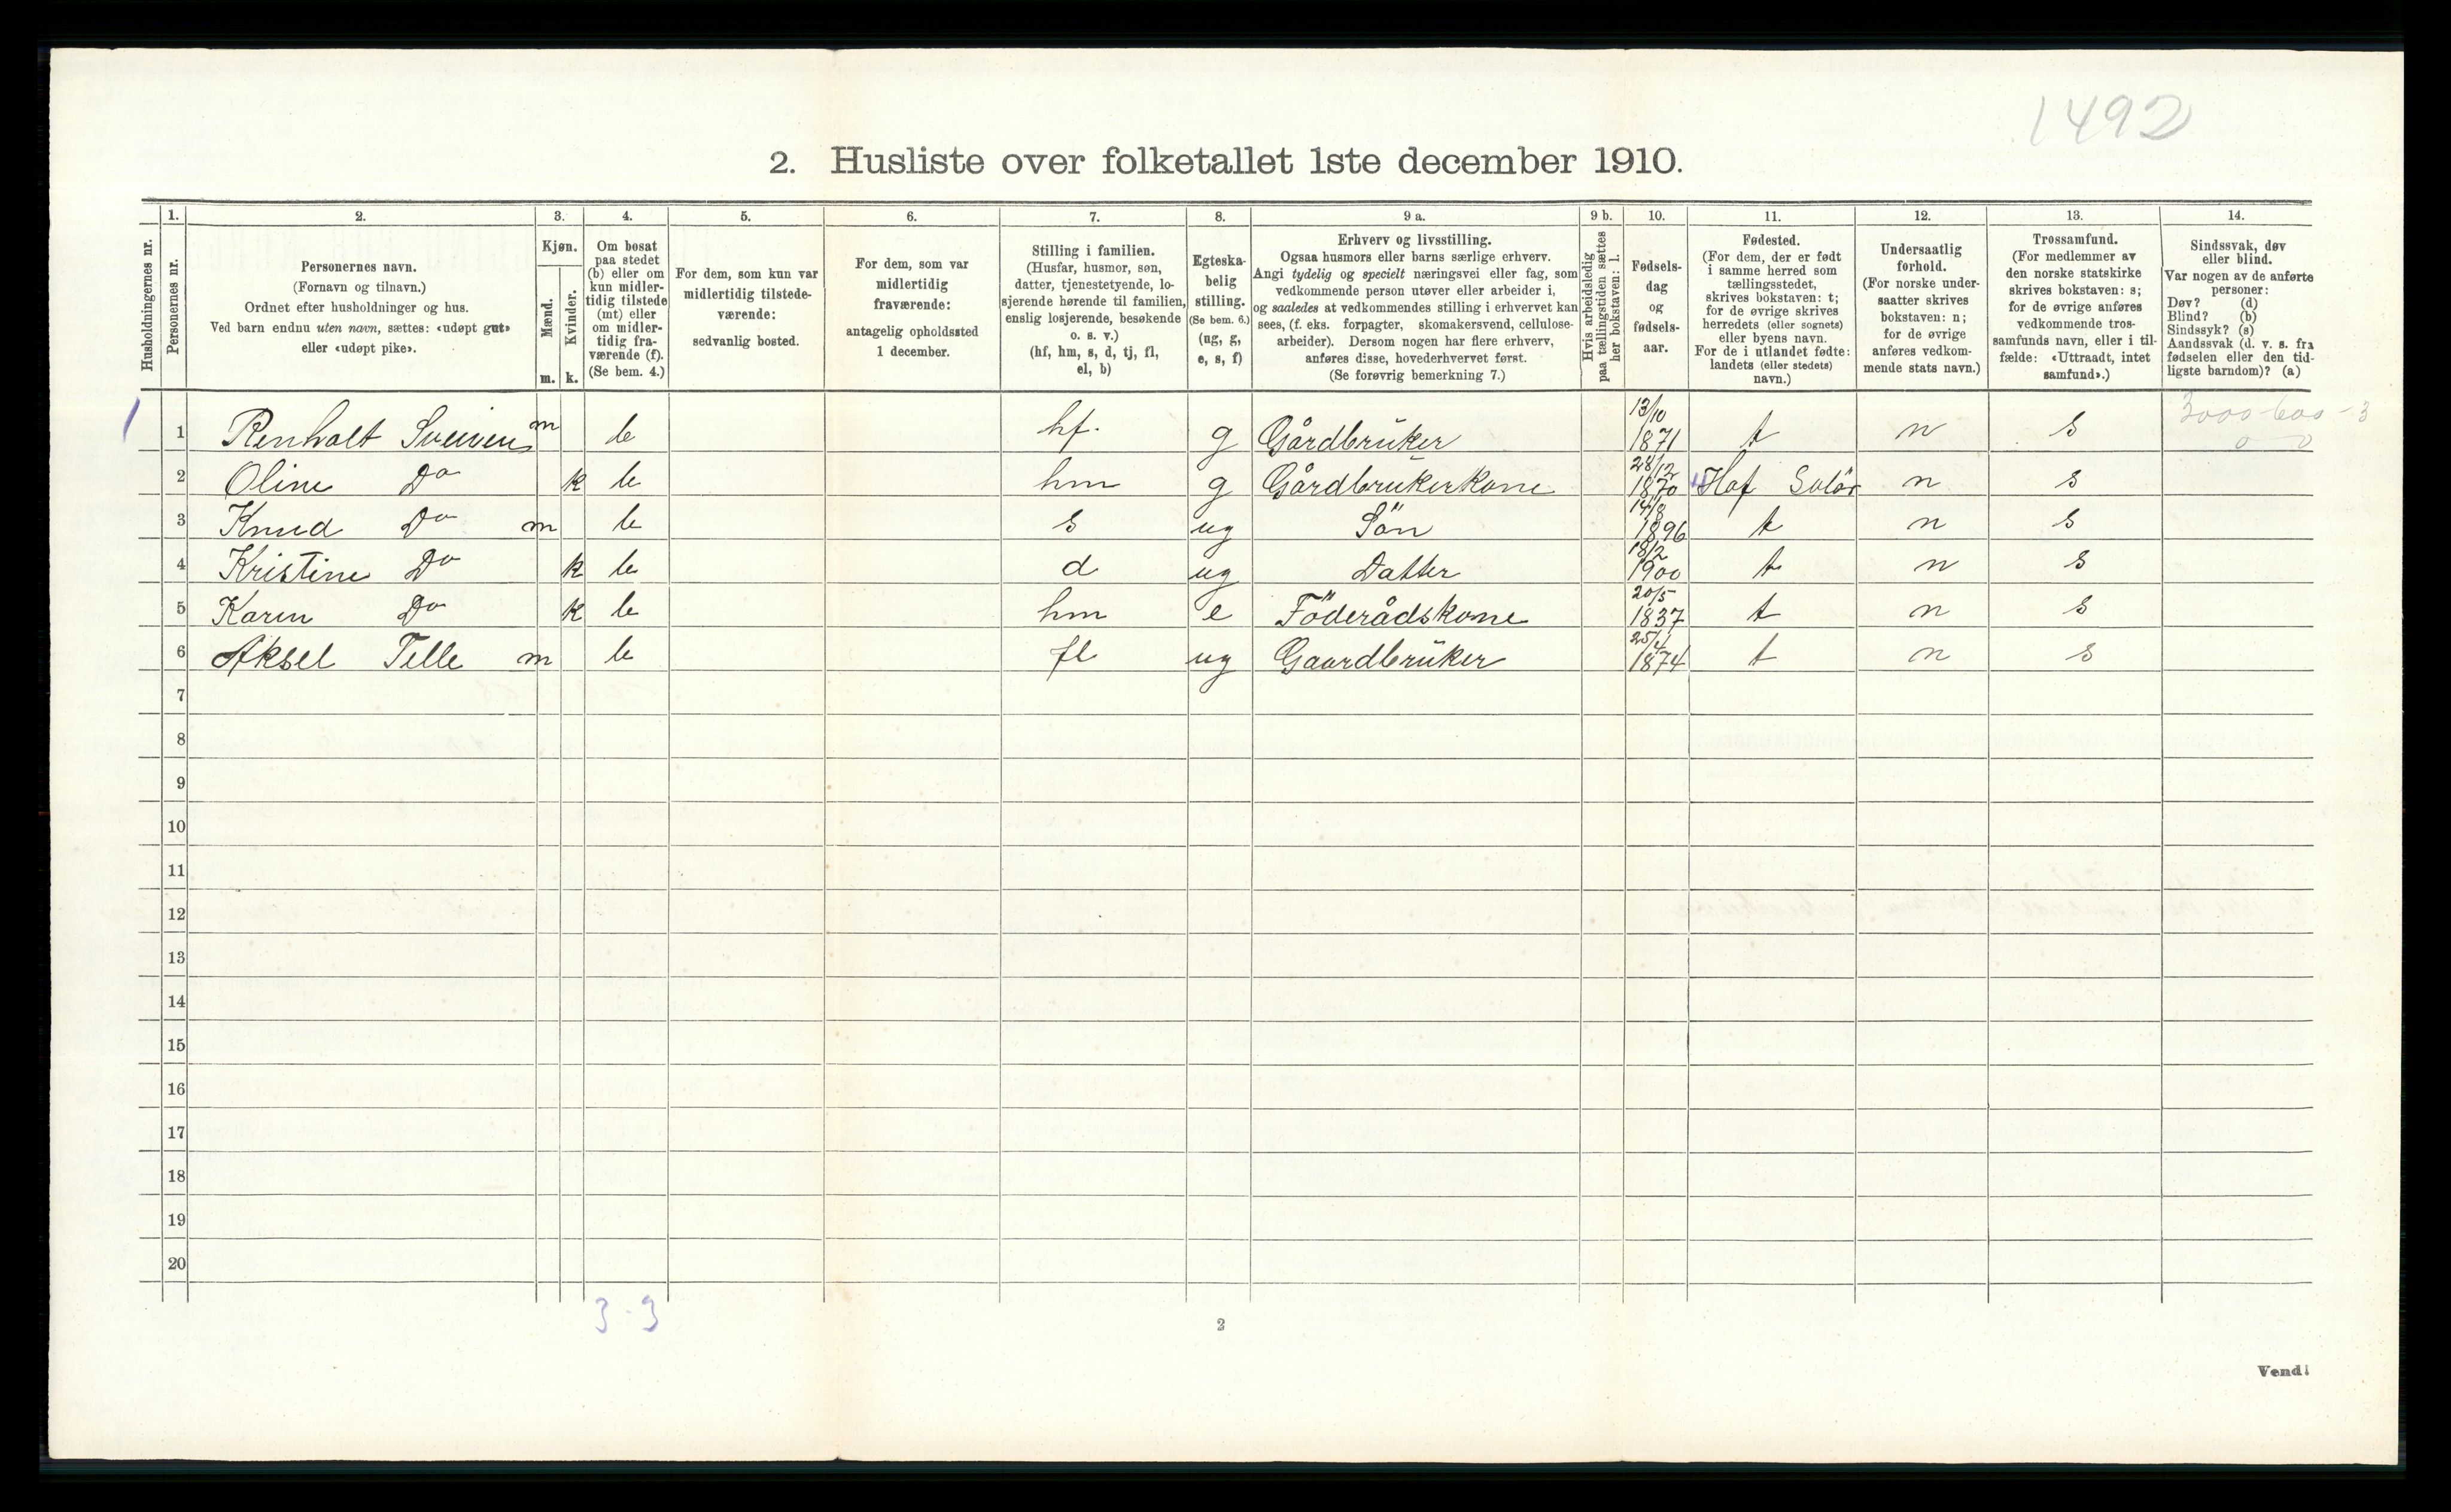 1492
2. Husliste over folketallet 1ste december 1910.
Husholdningernes nr.
1.
Personernes nr.
2.
Personernes navn.
(Fornavn og tilnavn.)
Ordnet efter husholdninger og hus.
Ved barn endnu uten navn, sættes: «udøpt gut»
eller «udøpt pike».
3.
Kjøn.
Mænd.
Kvinder.
m. k.
4.
Om bosat
paa stedet
(b) eller om
kun midler-
tidig tilstede
(mt) eller
om midler-
tidig fra-
værende (f).
(Se bem. 4.)
5.
For dem, som kun var
midlertidig tilstede-
værende:
sedvanlig bosted.
6.
For dem, som var
midlertidig
fraværende:
antagelig opholdssted
1 december.
7.
Stilling i familien.
(Husfar, husmor, søn,
datter, tjenestetyende, lo-
sjerende hørende til familien,
enslig losjerende, besøkende
o. s. v.)
(hf, hm, s, d, tj, fl,
el, b)
8.
Egteska-
belig
stilling.
(Se bem. 6.)
(ug, g,
e, s, f)
9 a.
Erhverv og livsstilling.
Ogsaa husmors eller barns særlige erhverv.
Angi tydelig og specielt næringsvei eller fag, som
vedkommende person utøver eller arbeider i,
og saaledes at vedkommendes stilling i erhvervet kan
sees, (f. eks. forpagter, skomakersvend, cellulose-
arbeider). Dersom nogen har flere erhverv,
anføres disse, hovederhvervet først.
(Se forøvrig bemerkning 7.)
9 b.
Hvis arbeidsledig
paa tællingstiden sættes
her bokstaven: l.
10.
Fødsels-
dag
og
fødsels-
aar.
11.
Fødested.
(For dem, der er født
i samme herred som
tællingsstedet,
skrives bokstaven: t;
for de øvrige skrives
herredets (eller sognets)
eller byens navn.
For de i utlandet fødte:
landets (eller stedets)
navn.)
12.
Undersaatlig
forhold.
(For norske under-
saatter skrives
bokstaven: n;
for de øvrige
anføres vedkom-
mende stats navn.)
13.
Trossamfund.
(For medlemmer av
den norske statskirke
skrives bokstaven: s;
for de øvrige anføres
vedkommende tros-
samfunds navn, eller i til-
fælde: «Uttraadt, intet
samfund».)
14.
Sindssvak, døv
eller blind.
Var nogen av de anførte
personer:
Døv? (d)
Blind? (b)
Sindssyk? (s)
Aandssvak (d. v. s. fra
fødselen eller den tid-
ligste barndom)? (a)
3000-600-3
0 0
1 1 Renholt m b hf. g Gårdbruker 13/10 1871 t n s
2 Oline Do k b hm g Gårdbrukerkone 28/12 1870 Hof Solör n s
3 Knud Do m b s ug Sön 14/8 1896 t n s
4 Kristine Do k b d ug Datter 18/2 1900 t n s
5 Karen Do k b hm e Föderådskone 20/5 1837 t n s
6 Aksel Telle m b fl ug Gaardbruker 25/4 1874 t n s
7
8
9
10
11
12
13
14
15
16
17
18
19
20
3 - 3
2
Vend!